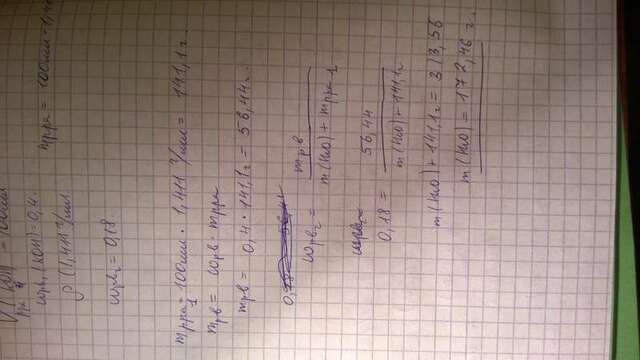 (KOH) = 100мл
ωрв₁(KOH) = 0,4.
ρ (1,411 г/мл
ωрв₂ = 0,18
mрра = 100мл · 1,4
mрра₁ = 100мл · 1,411 г/мл = 141,1 г.
mрв = ωрв · mрра
mрв = 0,4 · 141,1 г = 56,44 г.
ωрв₂ = mрв / m(H₂O) + mрра 1
0,18 = 56,44 / m(H₂O) + 141,1 г
m(H₂O) + 141,1 г = 313,56
m(H₂O) = 172,46 г.